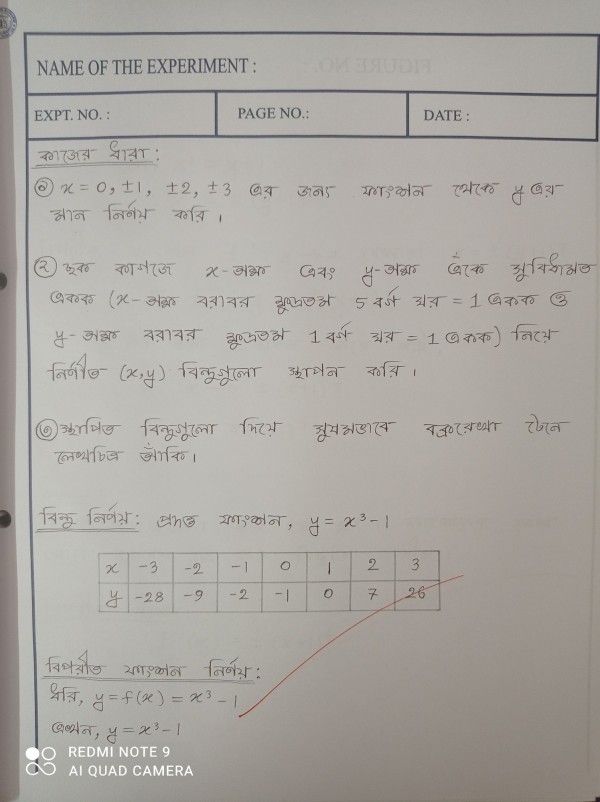 NAME OF THE EXPERIMENT :
EXPT. NO. :
PAGE NO.:
DATE :
কাজের ধারা :
① x = 0, ±1, ±2, ±3 এর জন্য ফাংশন থেকে y এর
মান নির্ণয় করি ।
② ছক কাগজে x-অক্ষ এবং y-অক্ষ এঁকে সুবিধামত
একক (x-অক্ষ বরাবর ক্ষুদ্রতম 5 বর্গ ঘর = 1 একক ও
y-অক্ষ বরাবর ক্ষুদ্রতম 1 বর্গ ঘর = 1 একক) নিয়ে
নির্ণীত (x,y) বিন্দুগুলো স্থাপন করি ।
③ স্থাপিত বিন্দুগুলো দিয়ে সুষমভাবে বক্ররেখা টেনে
লেখচিত্র আঁকি ।
বিন্দু নির্ণয় : প্রদত্ত ফাংশন, y = x³ - 1
x -3 -2 -1 0 1 2 3
y -28 -9 -2 -1 0 7 26
বিপরীত ফাংশন নির্ণয় :
ধরি, y = f(x) = x³ - 1
এখন, y = x³ - 1
REDMI NOTE 9
AI QUAD CAMERA